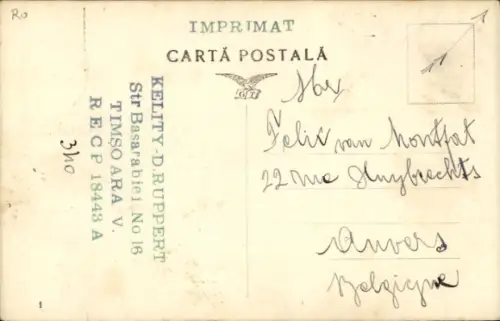 Ro
IMPRIMAT
CARTĂ POSTALĂ
KELITY-D.RUPPERT
Str Basarabiei No 16
TIMȘOARA V.
RECP 18443 A
3/40
Felix van Montfat
22 rue Huybrechts
Anvers
Belgique
1